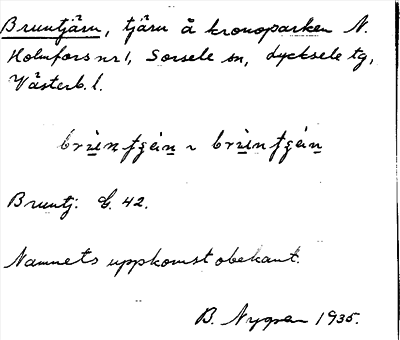 Bruntjärn, tjärn å kronoparken N.
Holmfors nr 1, Sorsele sn, Lycksele tg,
Västerb. l.
Bruntj: G. 42.
Namnets uppkomst obekant.
B. Nygren 1935.